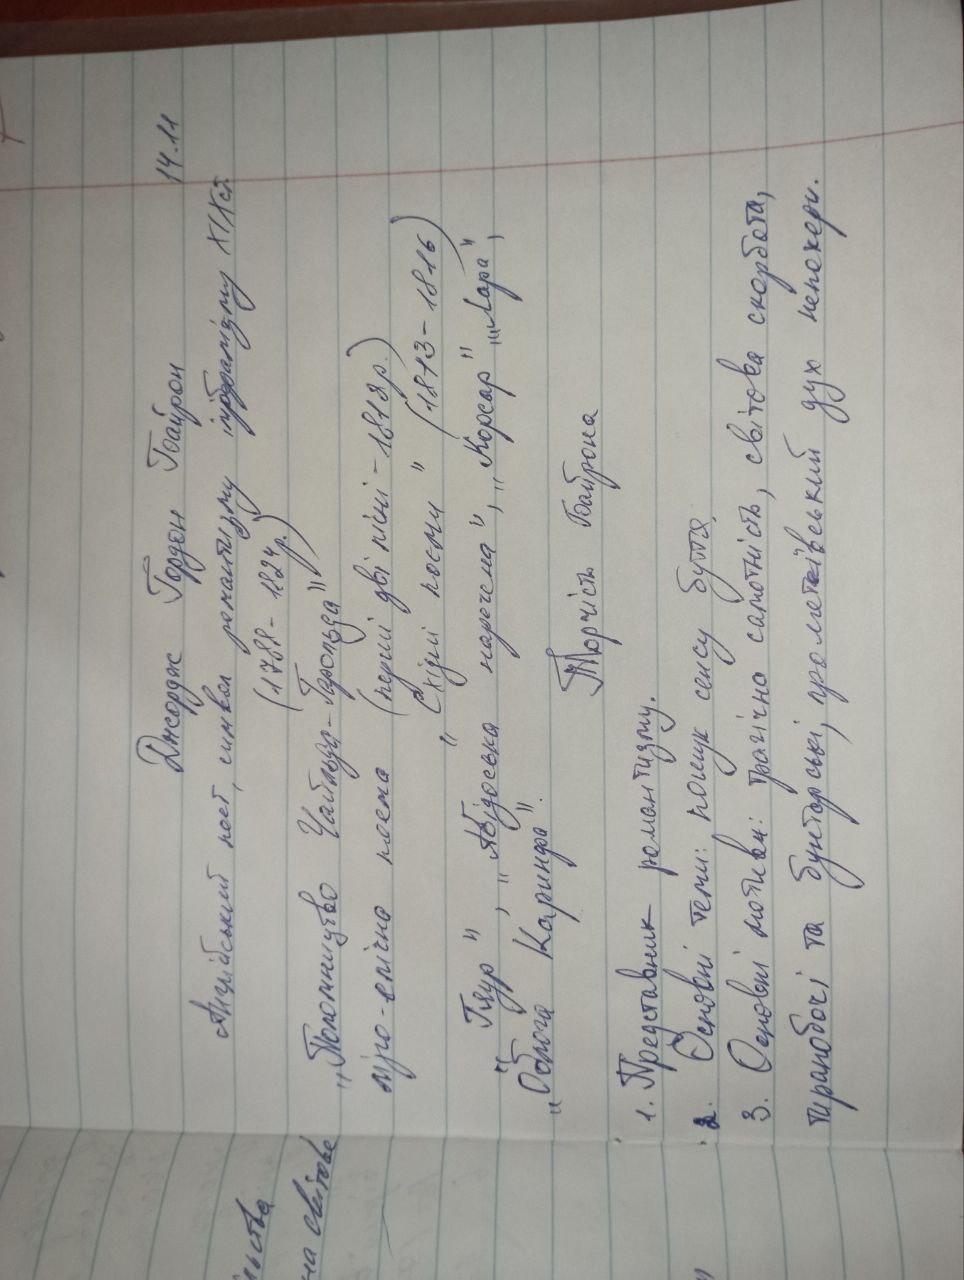 14.11
Джордж Гордон Байрон
Англійський поет, символ романтизму і лібералізму XIX ст.
(1788 - 1824р.)
„Паломництво Чайльда-Гарольда"
ліро-епічна поема (перші дві пісні - 1818р.)
"Східні поеми" (1813 - 1816)
"Гяур", „Абідоська наречена", „Корсар", „Лара",
„Облога Коринфа".
Творчість Байрона
1. Представник романтизму.
2. Основні теми: пошук сенсу буття.
3. Основні мотиви: трагічна самотність, світова скорбота,
тираноборчі та бунтарські, прометеївський дух непокори.
льства
на світове